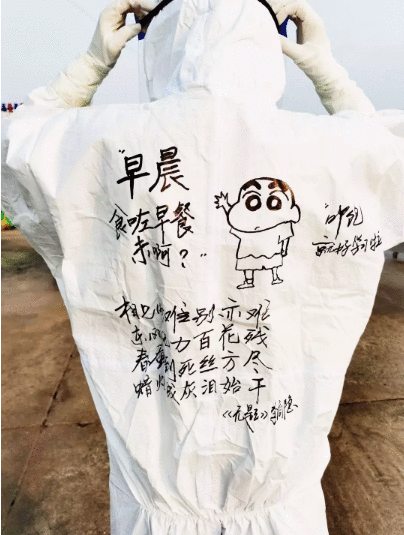 "早晨
食咗早餐
未啊？"
相见时难别亦难
东风无力百花残
春蚕到死丝方尽
蜡炬成灰泪始干
《无题》李商隐